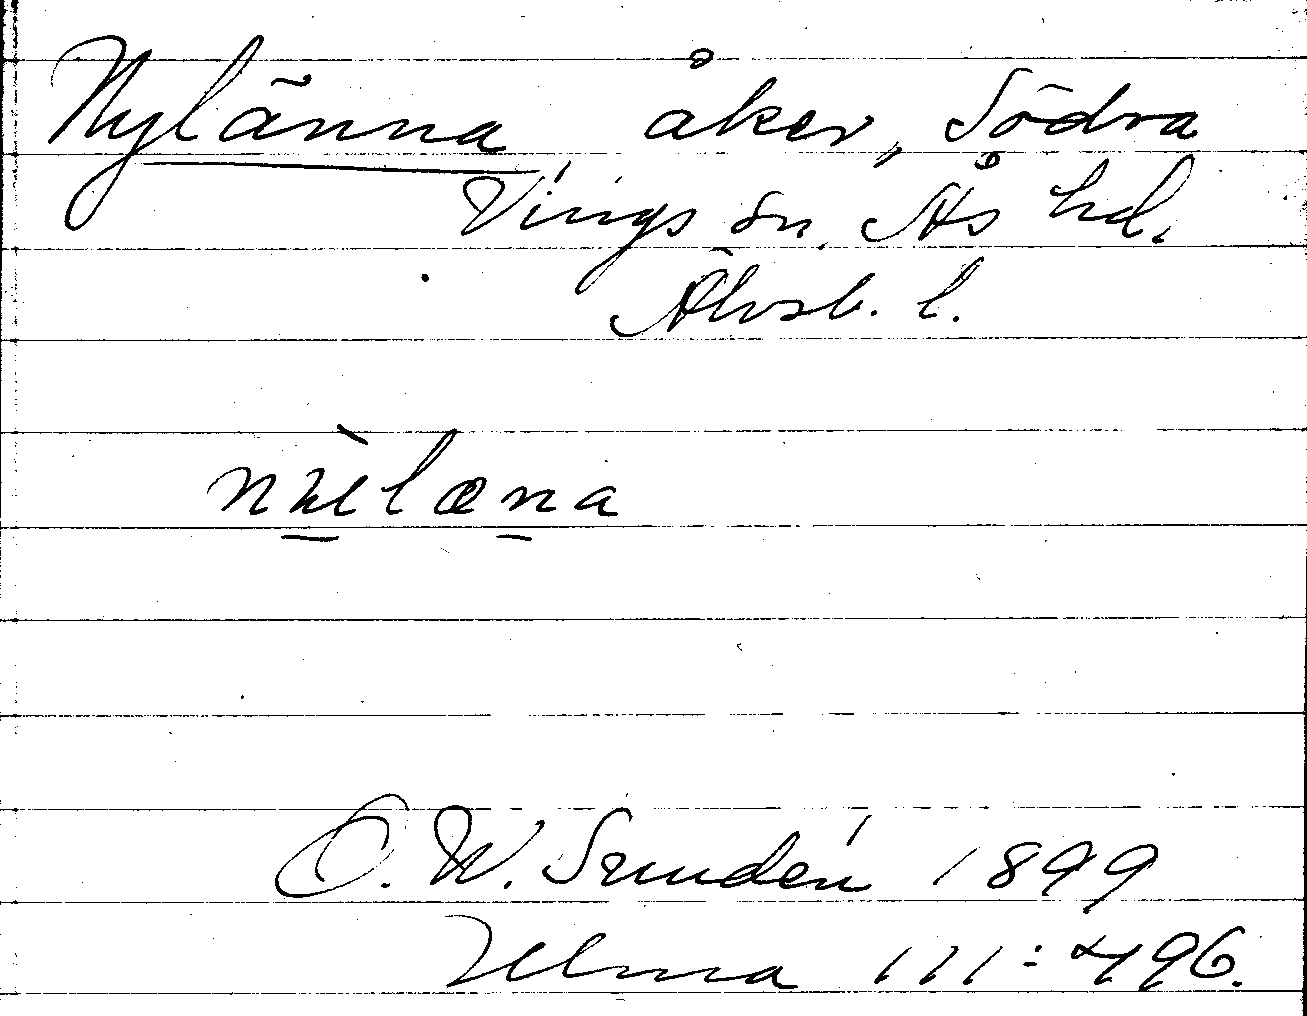 Nylänna, åker, Södra
Vings sn, Ås hd,
Älvsb. l.
O. W. Sundén 1899
Ulma 111:496.